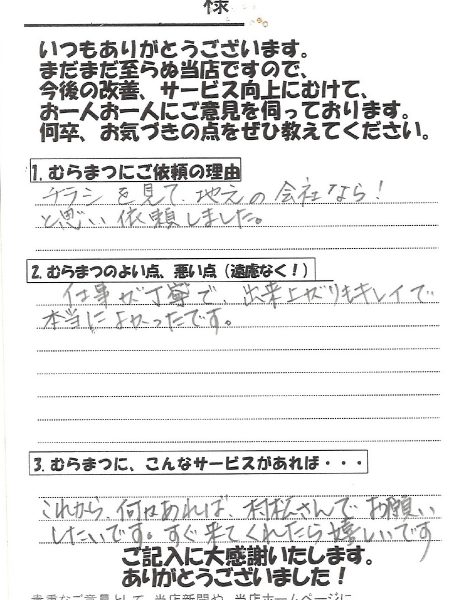 様
いつもありがとうございます。
まだまだ至らぬ当店ですので、
今後の改善、サービス向上にむけて、
お一人お一人にご意見を伺っております。
何卒、お気づきの点をぜひ教えてください。
1. むらまつにご依頼の理由
チラシを見て、地元の会社なら!
と思い依頼しました。
2. むらまつのよい点、悪い点（遠慮なく！）
仕事が丁寧で、出来上がりもキレイで
本当によかったです。
3. むらまつに、こんなサービスがあれば・・・
これから、何かあれば、村松さんでお願い
したいです。すぐ来てくれたら嬉しいです
ご記入に大感謝いたします。
ありがとうございました！
貴重なご意見として、当店新聞や、当店ホームページに